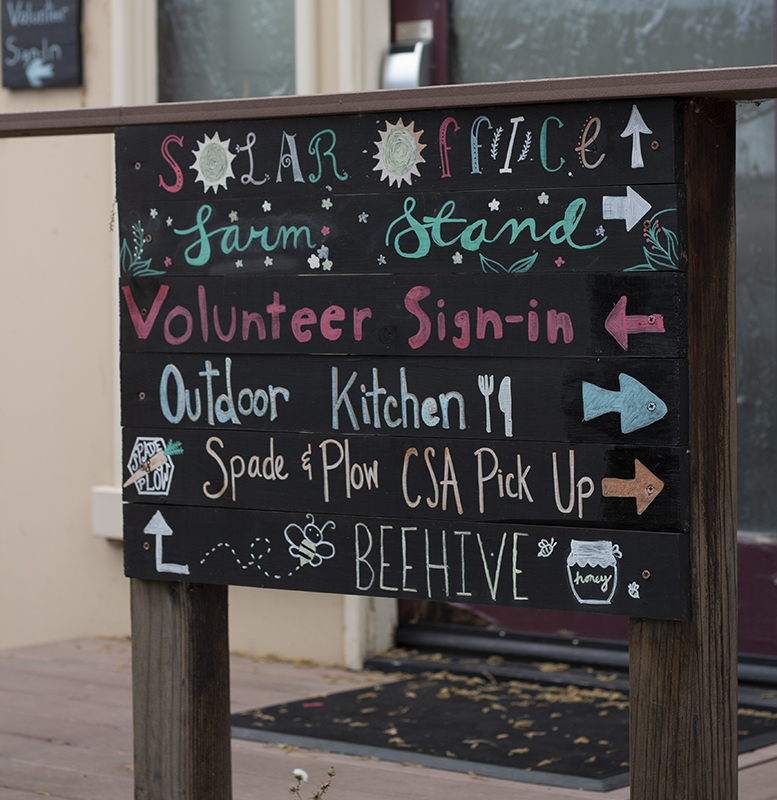 Volunteer
Sign-In
SOLAR OFFICE
Farm Stand
Volunteer Sign-in
Outdoor Kitchen
SPADE & PLOW
Spade & Plow CSA Pick Up
BEEHIVE
honey